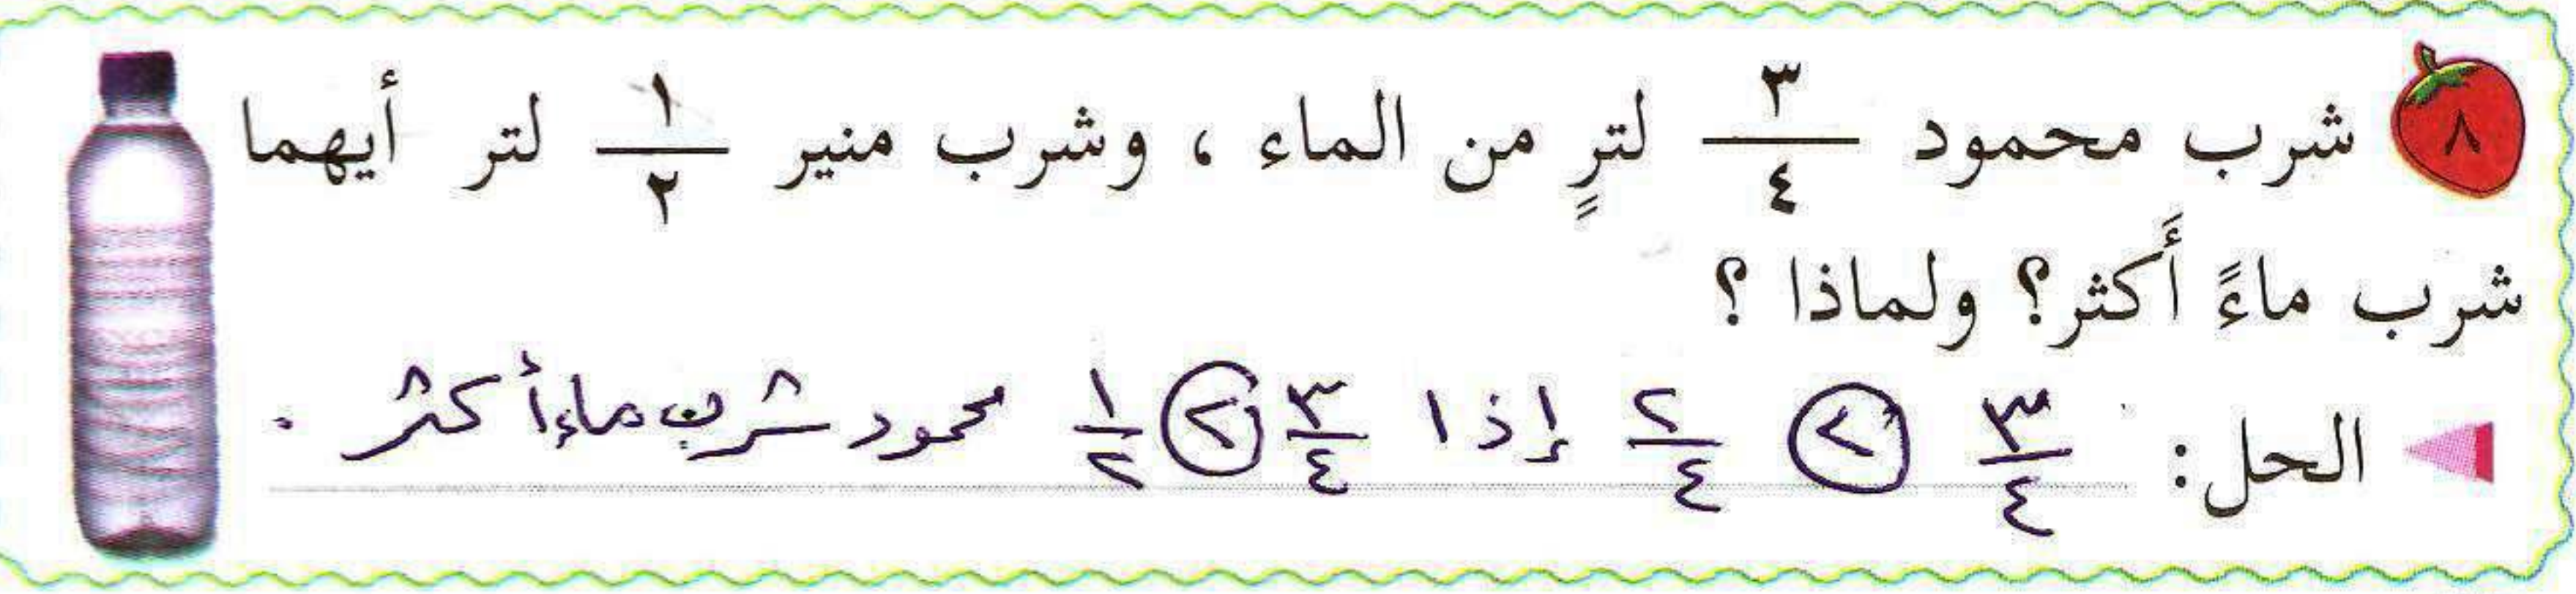 ٨ شرب محمود ٣/٤ لترٍ من الماء ، وشرب منير ١/٢ لتر أيهما
شرب ماءً أَكثر؟ ولماذا ؟
الحل: ٣/٤ > ٢/٤ إذا ٣/٤ > ١/٢ محمود شرب ماء أكثر .